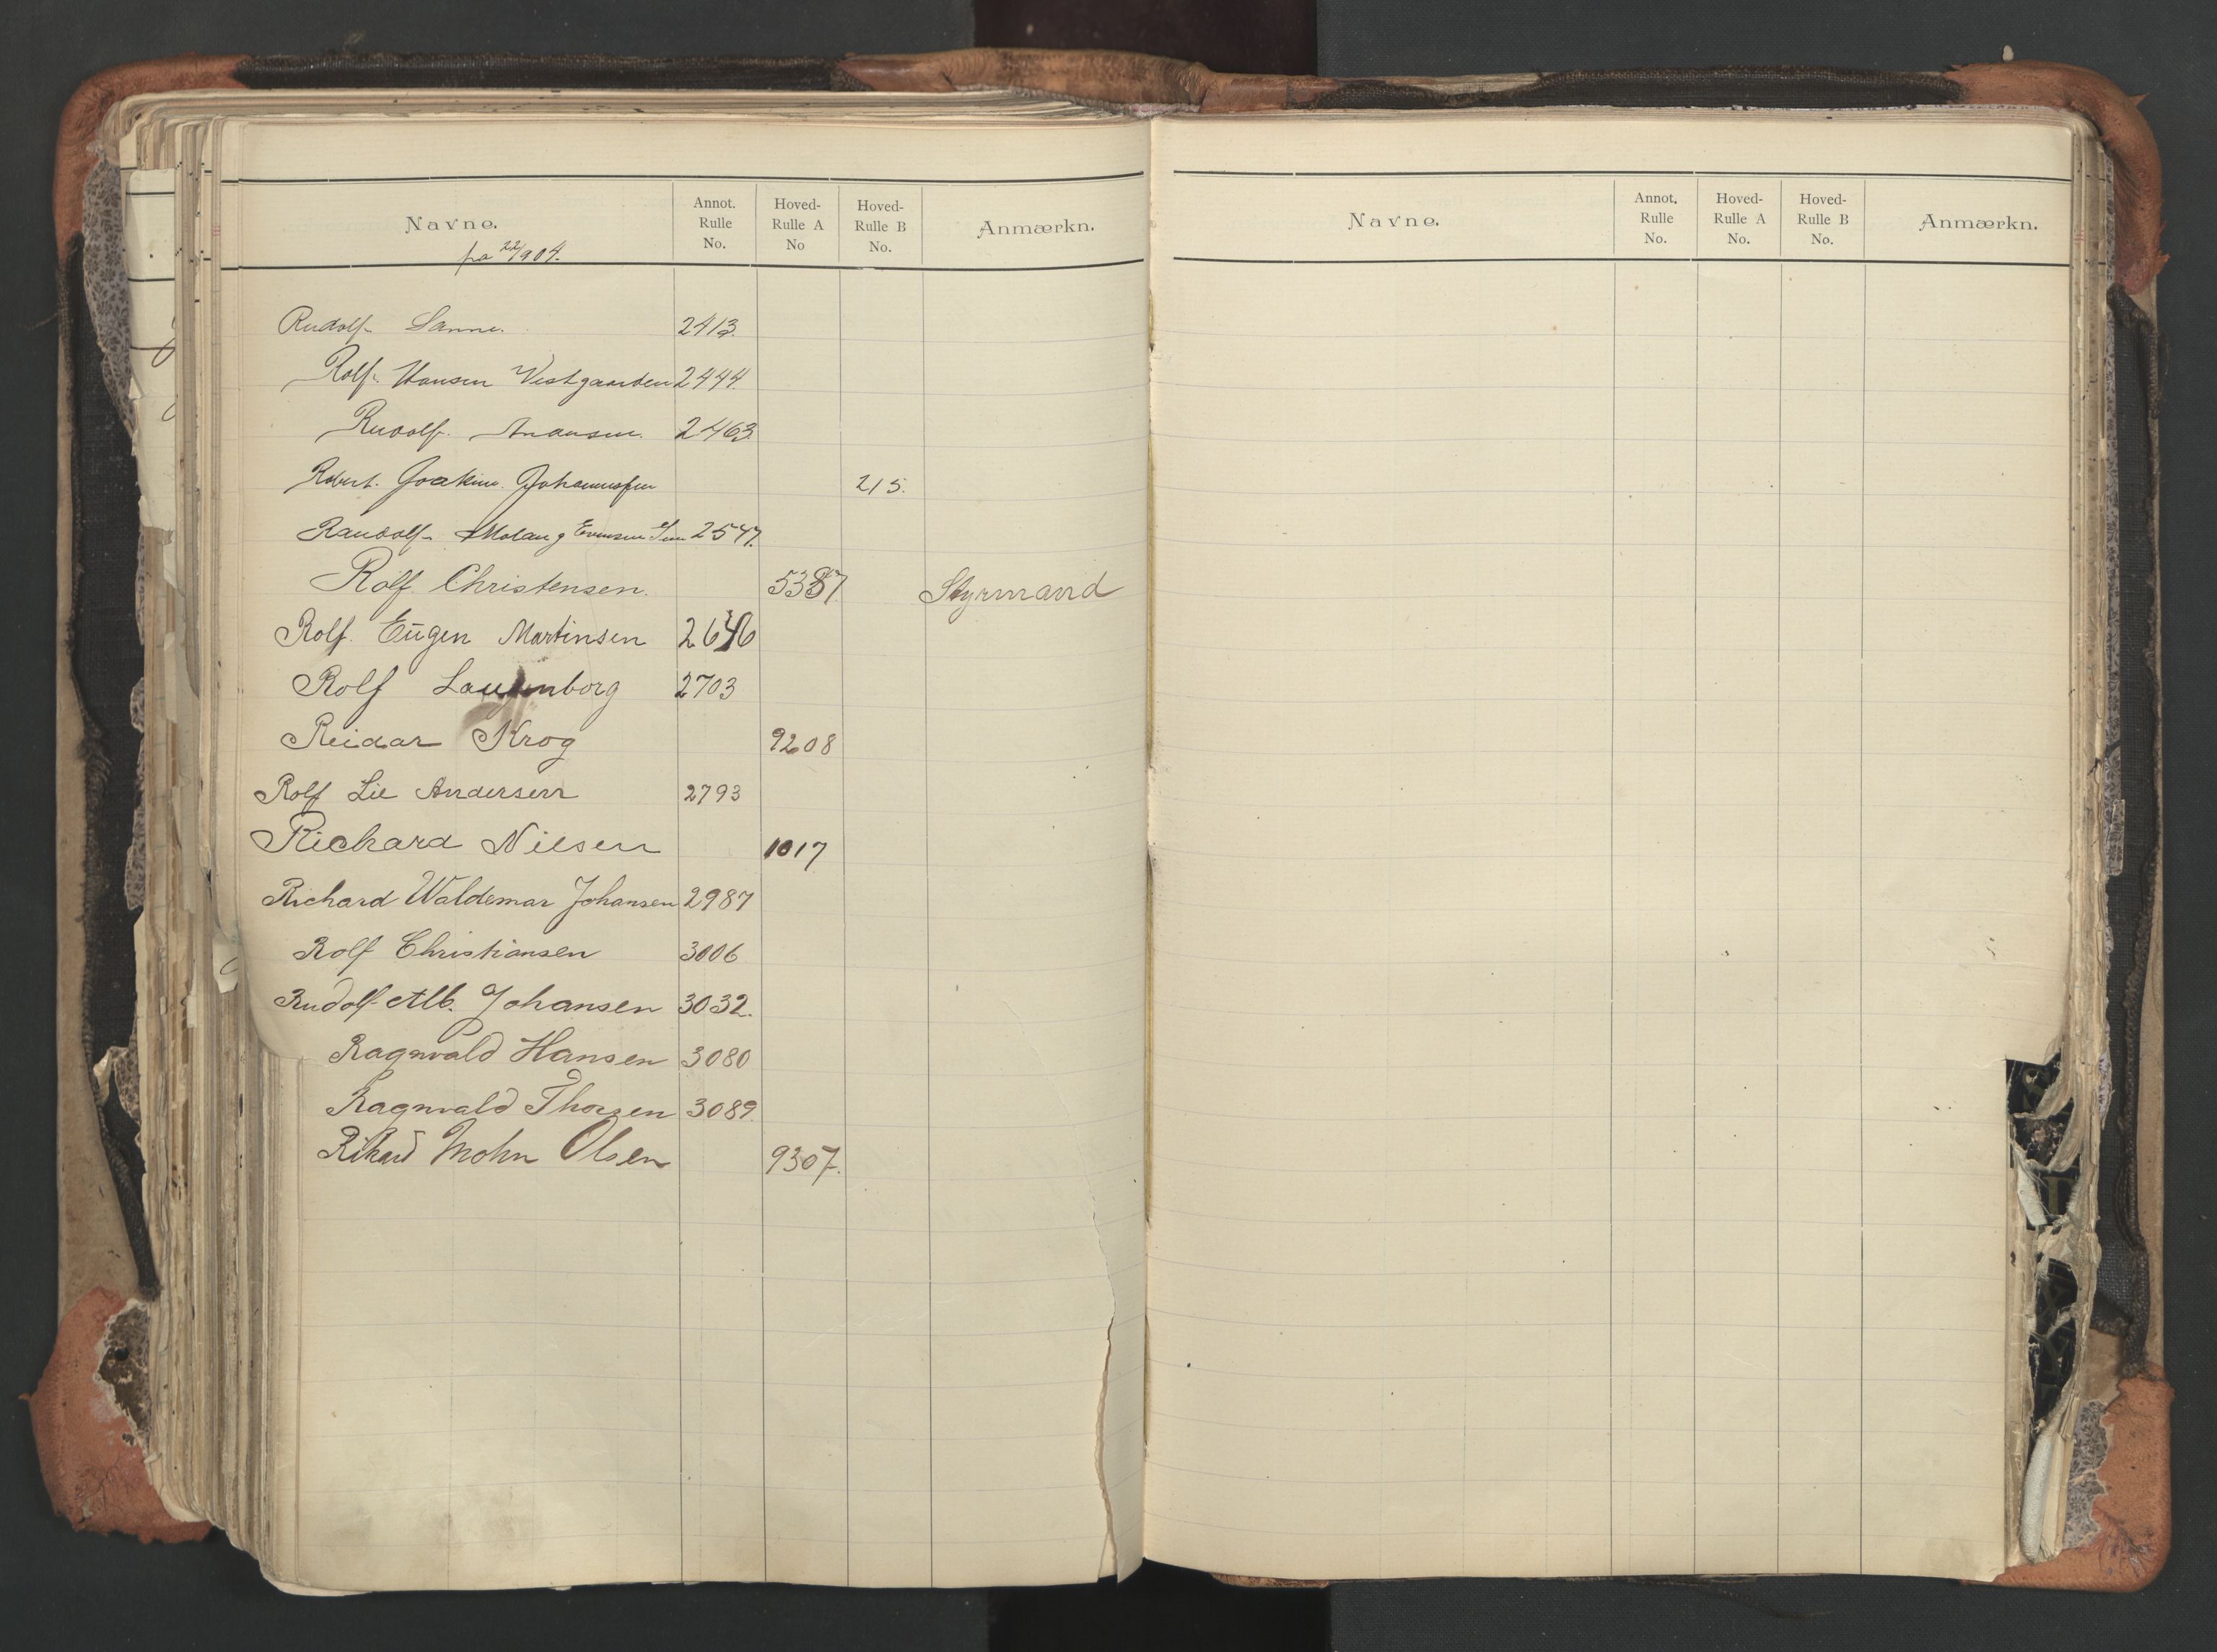 Navne. Annot. Rulle No. Hoved-Rulle A No Hoved-Rulle B No. Anmærkn.
Rudolf Sanne. 2413.
Rolf Hansen Vestgaarden 2444.
Rudolf Andersen. 2463
Robert Joakim Johannesen 215.
Randolf Evensen 2547.
Rolf Christensen. 5387 Styrmand
Rolf Eugen Martinsen
Rolf 2703
Reidar Krog 9208
Rolf Lie Andersen 2793
Richard Nilsen 1017
Richard Waldemar Johansen 2987
Rolf Christiansen 3006
Rudolf Alb. Johansen 3032.
Ragnvald Hansen 3080
Ragnvald Thorsen 3089.
Rikard Mohn Olsen 9307.
Navne. Annot. Rulle No. Hoved-Rulle A No. Hoved-Rulle B No. Anmærkn.